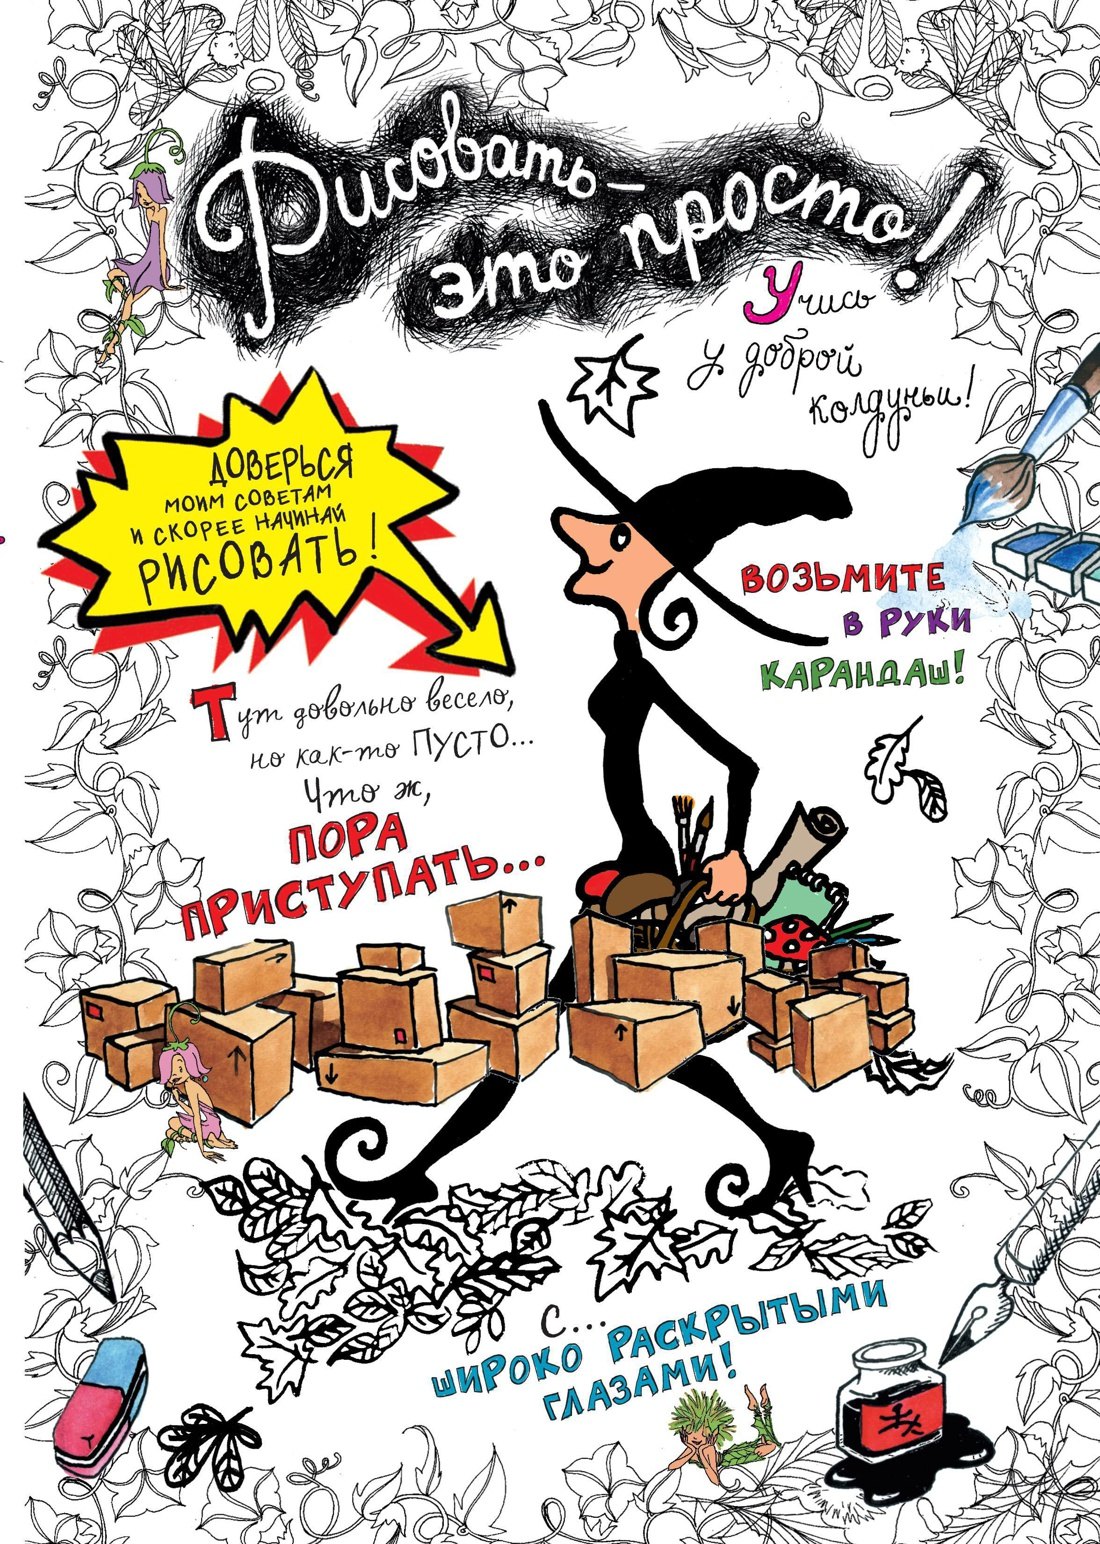 Рисовать –
это просто!
Учись
у доброй
колдуньи!
ДОВЕРЬСЯ
МОИМ СОВЕТАМ
И СКОРЕЕ НАЧИНАЙ
РИСОВАТЬ!
ВОЗЬМИТЕ
В РУКИ
КАРАНДАШ!
Тут довольно весело,
но как-то ПУСТО...
Что ж,
ПОРА
ПРИСТУПАТЬ...
С...
ШИРОКО РАСКРЫТЫМИ
ГЛАЗАМИ!